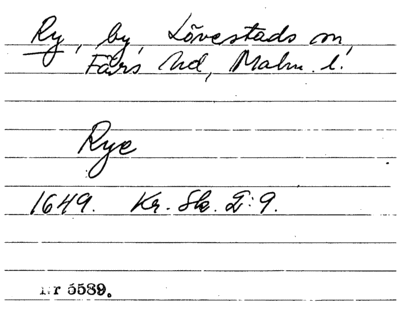 Ry, by, Lövestads sn,
Färs hd, Malm. l.
Rye
1649. Kr. Sk. L: 9.
Nr 5589.